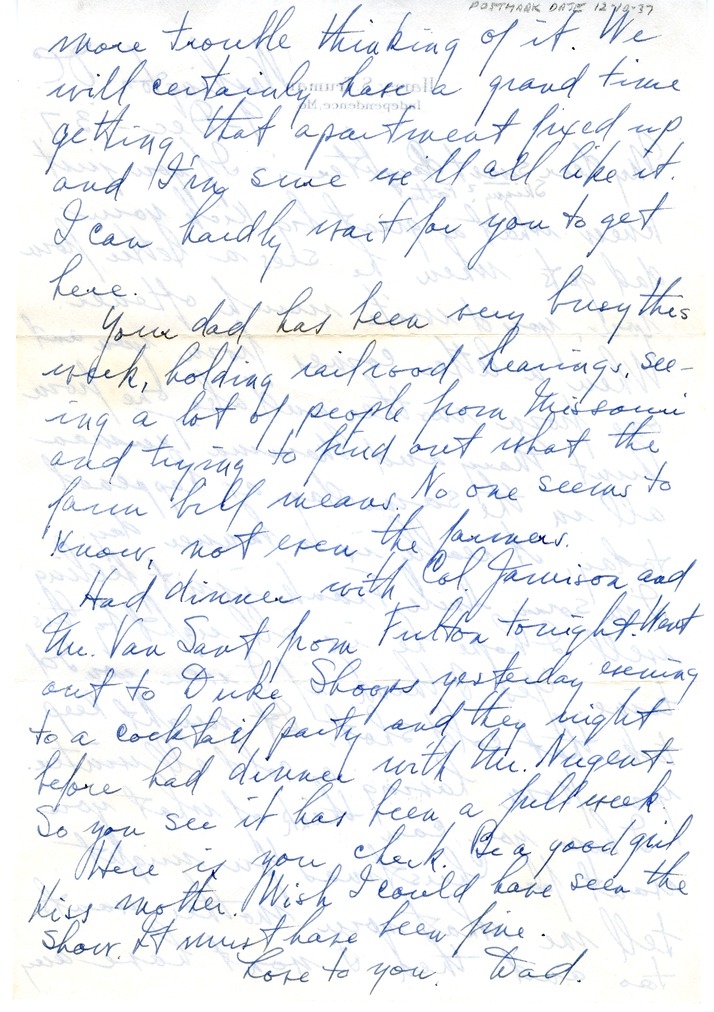 POSTMARK DATE 12-10-37
more trouble thinking of it. We
will certainly have a grand time
getting that apartment fixed up
and I'm sure we'll all like it.
I can hardly wait for you to get
here.
Your dad has been very busy this
week, holding railroad hearings, see-
ing a lot of people from Missouri
and trying to find out what the
farm bill means. No one seems to
know, not even the farmers.
Had dinner with Col. Jamison and
Mr. Van Sant from Fulton tonight. Went
out to Duke Shoops yesterday evening
to a cocktail party and they night
before had dinner with Mr. Nugent.
So you see it has been a full week.
Here is you check. Be a good girl
Kiss mother. Wish I could have seen the
show. It must have been fine.
Love to you. Dad.